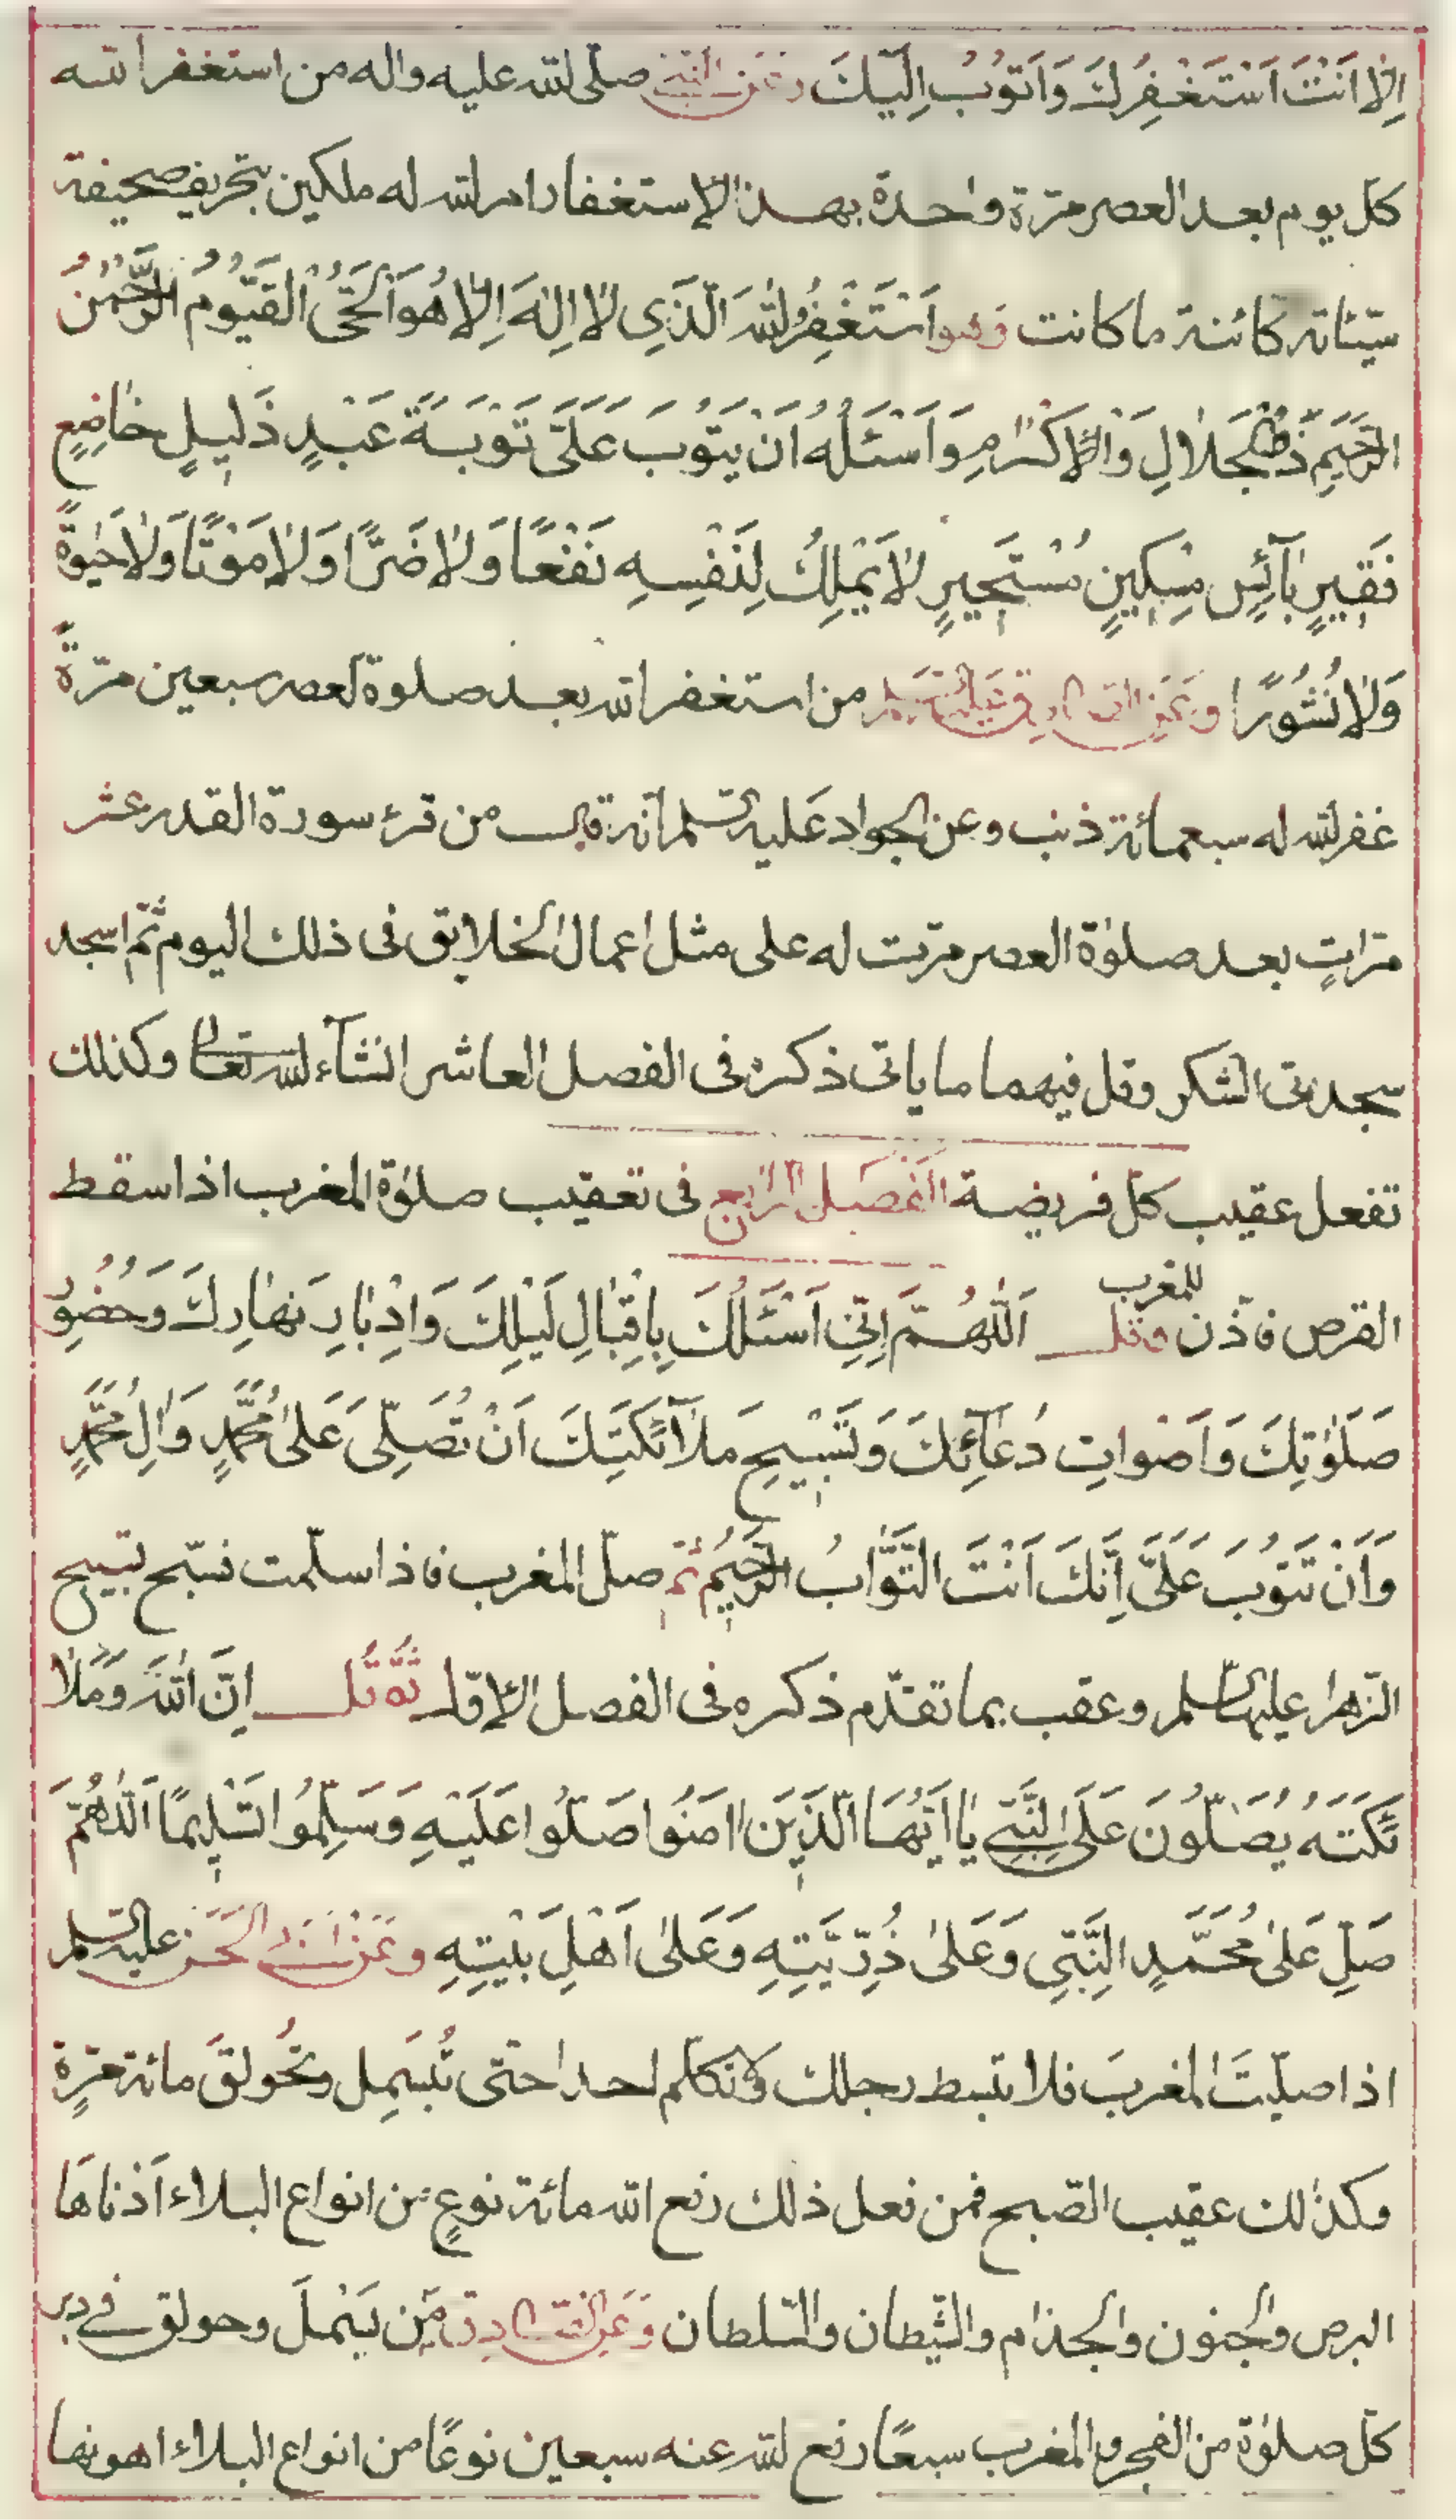 اِلّا اَنْتَ اَسْتَغْفِرُكَ وَاَتُوبُ اِلَيْكَ وعن النبيّ صلّى الله عليه واله من استغفر الله
كلّ يوم بعد العصر مرّة واحدة بهذا الإستغفار امر الله له ملكين بتخريق صحيفة
سيّئاته كائنة ما كانت وهو اَسْتَغْفِرُ اللهَ الَّذَي لا اِلهَ اِلّا هُوَ الْحَيُّ الْقَيُّومُ الرَّحْمنُ
الرَّحيَمِ ذُو الْجَلالِ وَالْاِكْرامِ وَاَسْئَلُهُ اَنْ يَتُوبَ عَلَىَّ تَوْبَةَ عَبْدٍ ذَليلٍ خاضِعٍ
فَقيرٍ بآئِسٍ مِسْكينٍ مُسْتَجيرٍ لا يَمْلِكُ لِنَفْسِه نَفْعًا وَلا ضَرًّا وَلا مَوْتًا وَلا حَيوةً
وَلا نُشُورًا وعن الصادق عليه السلم من استغفر الله بعد صلوة العصر سبعين مرّةً
غفر الله له سبعمائة ذنب وعن الجواد عليه السلم انّه قال من قرء سورة القدر عشر
مرّاتٍ بعد صلوة العصر مرّت له على مثل اعمال الخلايق فى ذلك اليوم ثمّ اسجد
سجدتى الشكر وقل فيهما ما ياتى ذكره فى الفصل العاشر انشآء الله تعالى وكذلك
تفعل عقيب كلّ فريضة الفصل الرابع فى تعقيب صلوة المغرب اذا سقط
القرص فاذّن للمغرب وقل اَللّهُمَّ اِنّي اَسْئَلُكَ بِاِقْبالِ لَيْلِكَ وَاِدْبارِ نَهارِكَ وَحُضُورِ
صَلَوٰتِكَ وَاَصْواتِ دُعآئِكَ وَتَسْبيحِ مَلآئِكَتِكَ اَنْ تُصَلِّىَ عَلىٰ مُحَمَّدٍ وَالِ مُحَمَّدٍ
وَاَنْ تَتُوبَ عَلَىَّ اِنَّكَ اَنْتَ التَّوّابُ الرَّحيمُ ثمّ صلّ المغرب فاذا سلّمت فسبّح تسبيح
الزّهراء عليها السلم وعقب بما تقدّم ذكره فى الفصل الاوّل ثمّ قل اِنَّ اللهَ وَمَلا
ئِكَتَهُ يُصَلُّونَ عَلَى النَّبِيّ يا اَيُّهَا الَّذينَ امَنُوا صَلُّوا عَلَيْهِ وَسَلِّمُوا تَسْليمًا اَللّهُمَّ
صَلِّ عَلىٰ مُحَمَّدٍ النَّبِيِّ وَعَلىٰ ذُرِّيَّتِهِ وَعَلىٰ اَهْلِ بَيْتِهِ وعن ابي الحسن عليه السلم
اذا صلّيتَ المغربَ فلا تبسط رجلك ولا تكلّم احدا حتّى تُبَسمِل وتُحَولقَ مائة مرّةٍ
وكذلك عقيب الصّبح فمن فعل ذلك رفع الله مائة نوعٍ من انواع البلاء اَدْناهَا
البرص والجنون والجذام والشّيطان والسّلطان وعن الصادق من بسمل وحولق في دبر
كلّ صلوة من الفجر والمغرب سبعًا رفع الله عنه سبعين نوعًا من انواع البلاء اهونها